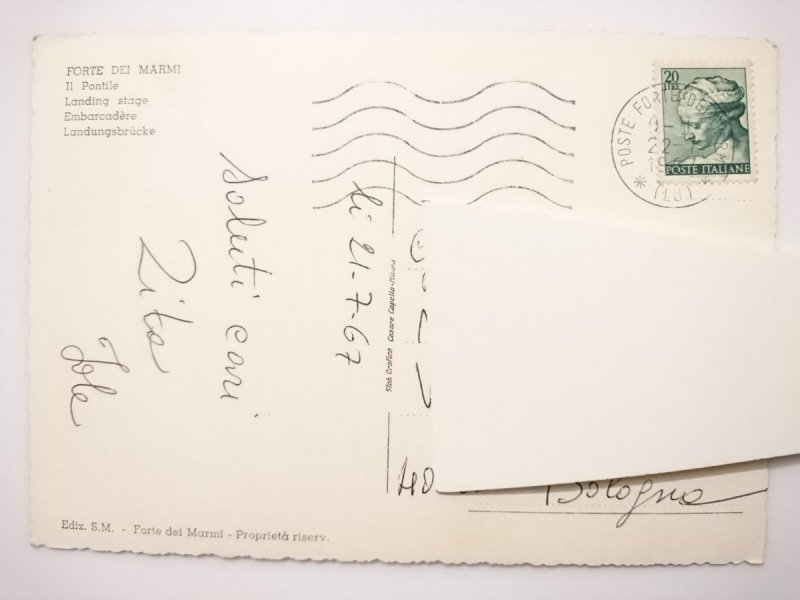 FORTE DEI MARMI
Il Pontile
Landing stage
Embarcadère
Landungsbrücke
20
LIRE
POSTE ITALIANE
POSTE FORTE DEI
(LU)
li 21-7-67
Saluti cari
Rita
Iole
Stab. Grafico Cesare Capello-Milano
Bologna
Ediz. S.M. - Forte dei Marmi - Proprietà riserv.